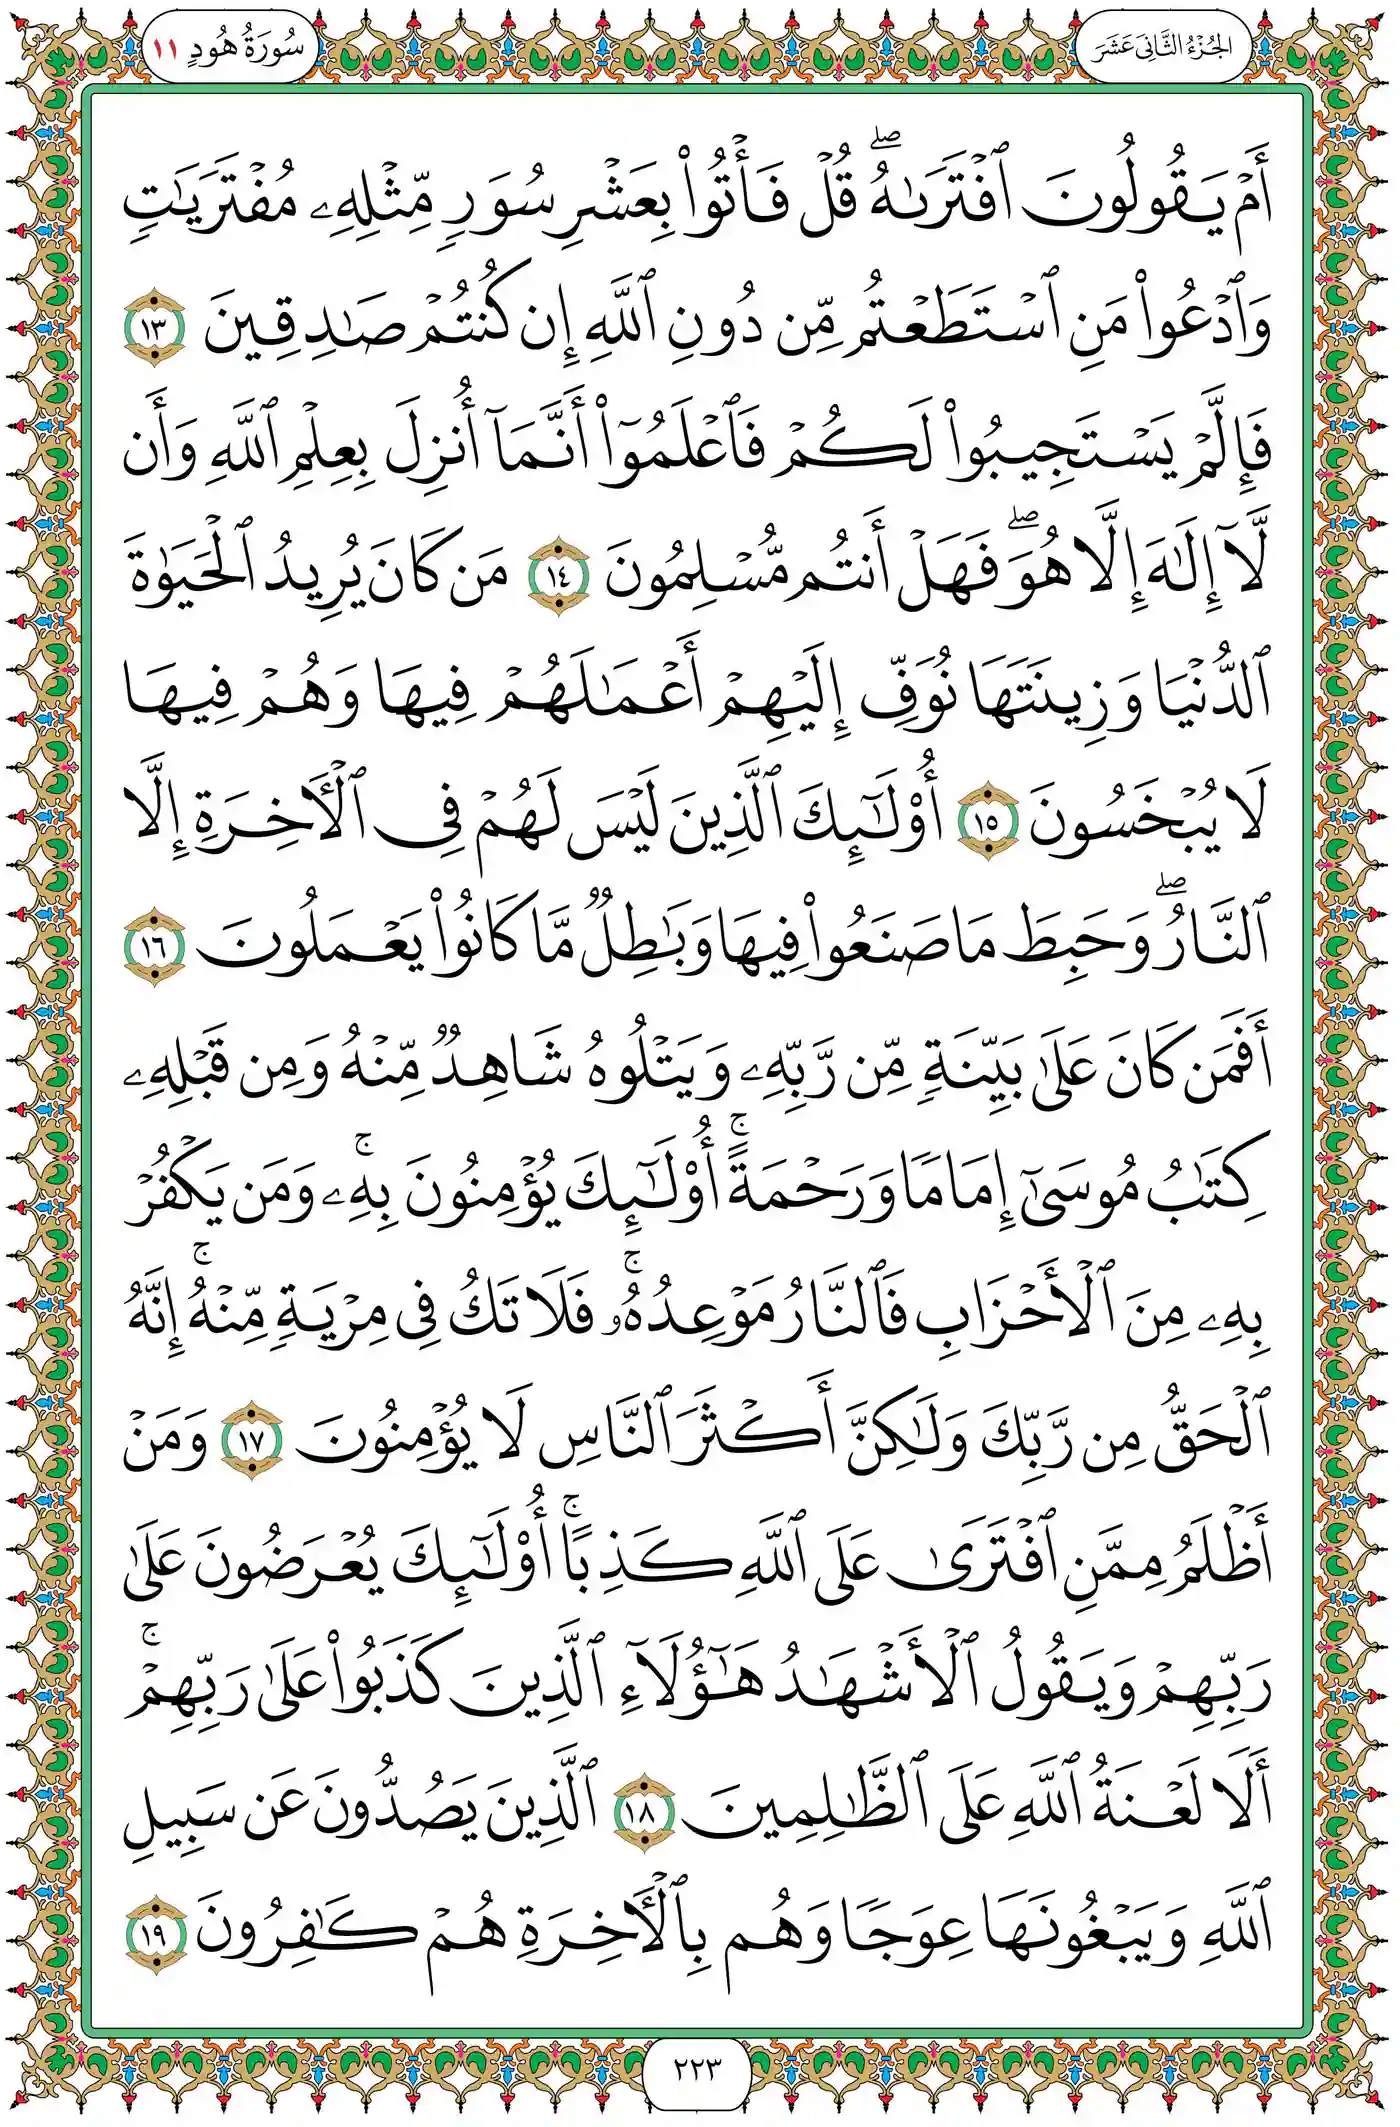 الجُزْءُ الثَّانِي عَشَرَ
سُورَةُ هُودٍ ١١
أَمْ يَقُولُونَ ٱفْتَرَىٰهُۖ قُلْ فَأْتُوا۟ بِعَشْرِ سُوَرٍ مِّثْلِهِۦ مُفْتَرَيَٰتٍ
وَٱدْعُوا۟ مَنِ ٱسْتَطَعْتُم مِّن دُونِ ٱللَّهِ إِن كُنتُمْ صَٰدِقِينَ ١٣
فَإِلَّمْ يَسْتَجِيبُوا۟ لَكُمْ فَٱعْلَمُوٓا۟ أَنَّمَآ أُنزِلَ بِعِلْمِ ٱللَّهِ وَأَن
لَّآ إِلَٰهَ إِلَّا هُوَۖ فَهَلْ أَنتُم مُّسْلِمُونَ ١٤ مَن كَانَ يُرِيدُ ٱلْحَيَوٰةَ
ٱلدُّنْيَا وَزِينَتَهَا نُوَفِّ إِلَيْهِمْ أَعْمَٰلَهُمْ فِيهَا وَهُمْ فِيهَا
لَا يُبْخَسُونَ ١٥ أُو۟لَٰٓئِكَ ٱلَّذِينَ لَيْسَ لَهُمْ فِى ٱلْأَخِرَةِ إِلَّا
ٱلنَّارُۖ وَحَبِطَ مَا صَنَعُوا۟ فِيهَا وَبَٰطِلٌ مَّا كَانُوا۟ يَعْمَلُونَ ١٦
أَفَمَن كَانَ عَلَىٰ بَيِّنَةٍ مِّن رَّبِّهِۦ وَيَتْلُوهُ شَاهِدٌ مِّنْهُ وَمِن قَبْلِهِۦ
كِتَٰبُ مُوسَىٰٓ إِمَامًا وَرَحْمَةًۚ أُو۟لَٰٓئِكَ يُؤْمِنُونَ بِهِۦۚ وَمَن يَكْفُرْ
بِهِۦ مِنَ ٱلْأَحْزَابِ فَٱلنَّارُ مَوْعِدُهُۥۚ فَلَا تَكُ فِى مِرْيَةٍ مِّنْهُۚ إِنَّهُ
ٱلْحَقُّ مِن رَّبِّكَ وَلَٰكِنَّ أَكْثَرَ ٱلنَّاسِ لَا يُؤْمِنُونَ ١٧ وَمَنْ
أَظْلَمُ مِمَّنِ ٱفْتَرَىٰ عَلَى ٱللَّهِ كَذِبًاۚ أُو۟لَٰٓئِكَ يُعْرَضُونَ عَلَىٰ
رَبِّهِمْ وَيَقُولُ ٱلْأَشْهَٰدُ هَٰٓؤُلَآءِ ٱلَّذِينَ كَذَبُوا۟ عَلَىٰ رَبِّهِمْۚ
أَلَا لَعْنَةُ ٱللَّهِ عَلَى ٱلظَّٰلِمِينَ ١٨ ٱلَّذِينَ يَصُدُّونَ عَن سَبِيلِ
ٱللَّهِ وَيَبْغُونَهَا عِوَجًا وَهُم بِٱلْأَخِرَةِ هُمْ كَٰفِرُونَ ١٩
٢٢٣